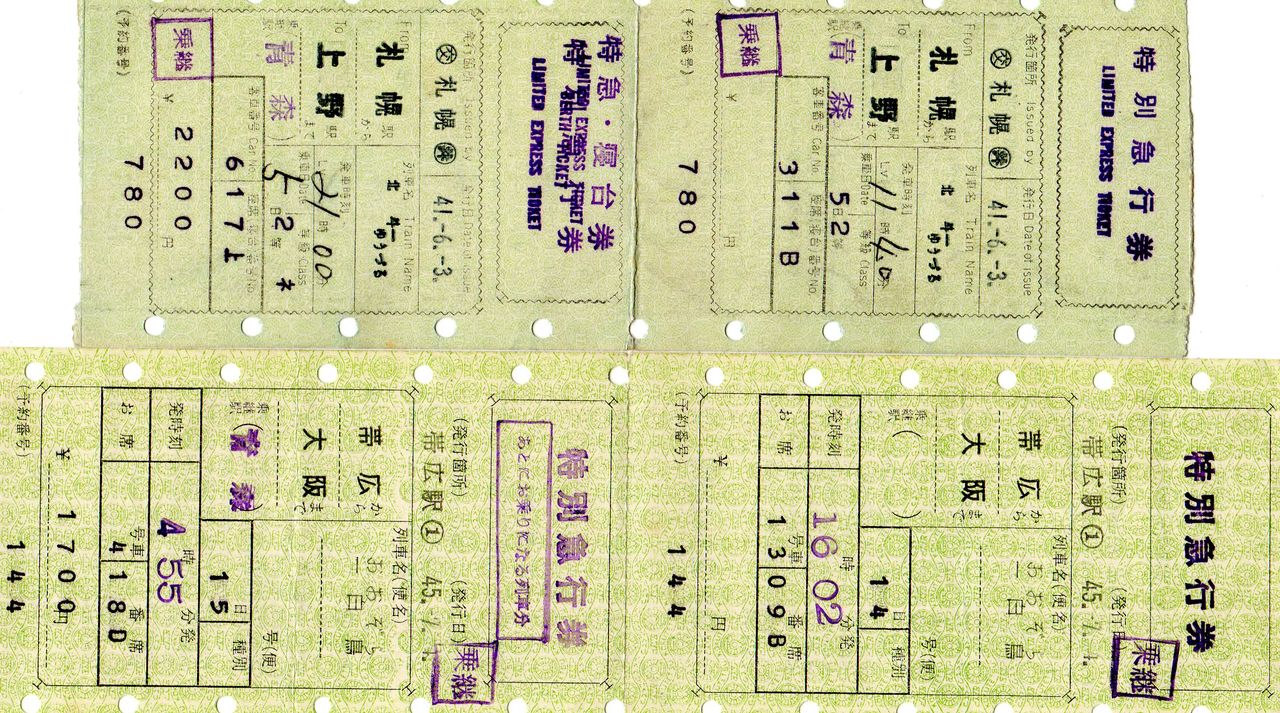 特急・寝台券
LIMITED EXPRESS TICKET
BERTH TICKET
特 券
LIMITED EXPRESS TICKET
発行箇所 Issued by
発行日 Date of issue
㊋ 札幌 41.-6.-3.
From
札幌 駅から
列車名 Train Name
北斗一ゆうづる
To
上野 駅まで
発車時刻
21 時 00
乗継駅 青森
乗車日 Date 等級 Class
5 日 2 等 ネ
客車番号 Car No.
6 17上
乗継
¥ 2200 円
(予約番号) 780
特別急行券
LIMITED EXPRESS TICKET
発行箇所 Issued by
発行日 Date of issue
札幌 41.-6.-3.
From
札幌 駅から
列車名 Train Name
北斗一ゆうづる
To
上野 駅まで
発車時刻
Lv 11 時 40
乗継駅 青森
乗車日 Date 等級 Class
5 日 2 等
客車番号 Car No. 座席寝台番号 No.
3 11B
乗継
¥ 円
(予約番号) 780
特別急行券
あとにお乗りになる列車分
(発行箇所) (発行日)
帯広駅① 45.
乗継
帯広 から
列車名(便名)
おおぞら一白鳥
大阪 まで
号(便)
乗継駅 (青森)
15 日 種別
発時刻 4 時 55 分発
お席 4 号車 18D 番席
¥ 1700円
(予約番号) 144
特別急行券
(発行箇所)
帯広駅① 45.
乗継
帯広 から
列車名(便名)
おおぞら一白鳥
大阪 まで
号(便)
乗継駅 ( )
14 日 種別
発時刻 16 時 02 分発
お席 13 号車 09B 番席
¥ 円
(予約番号) 144